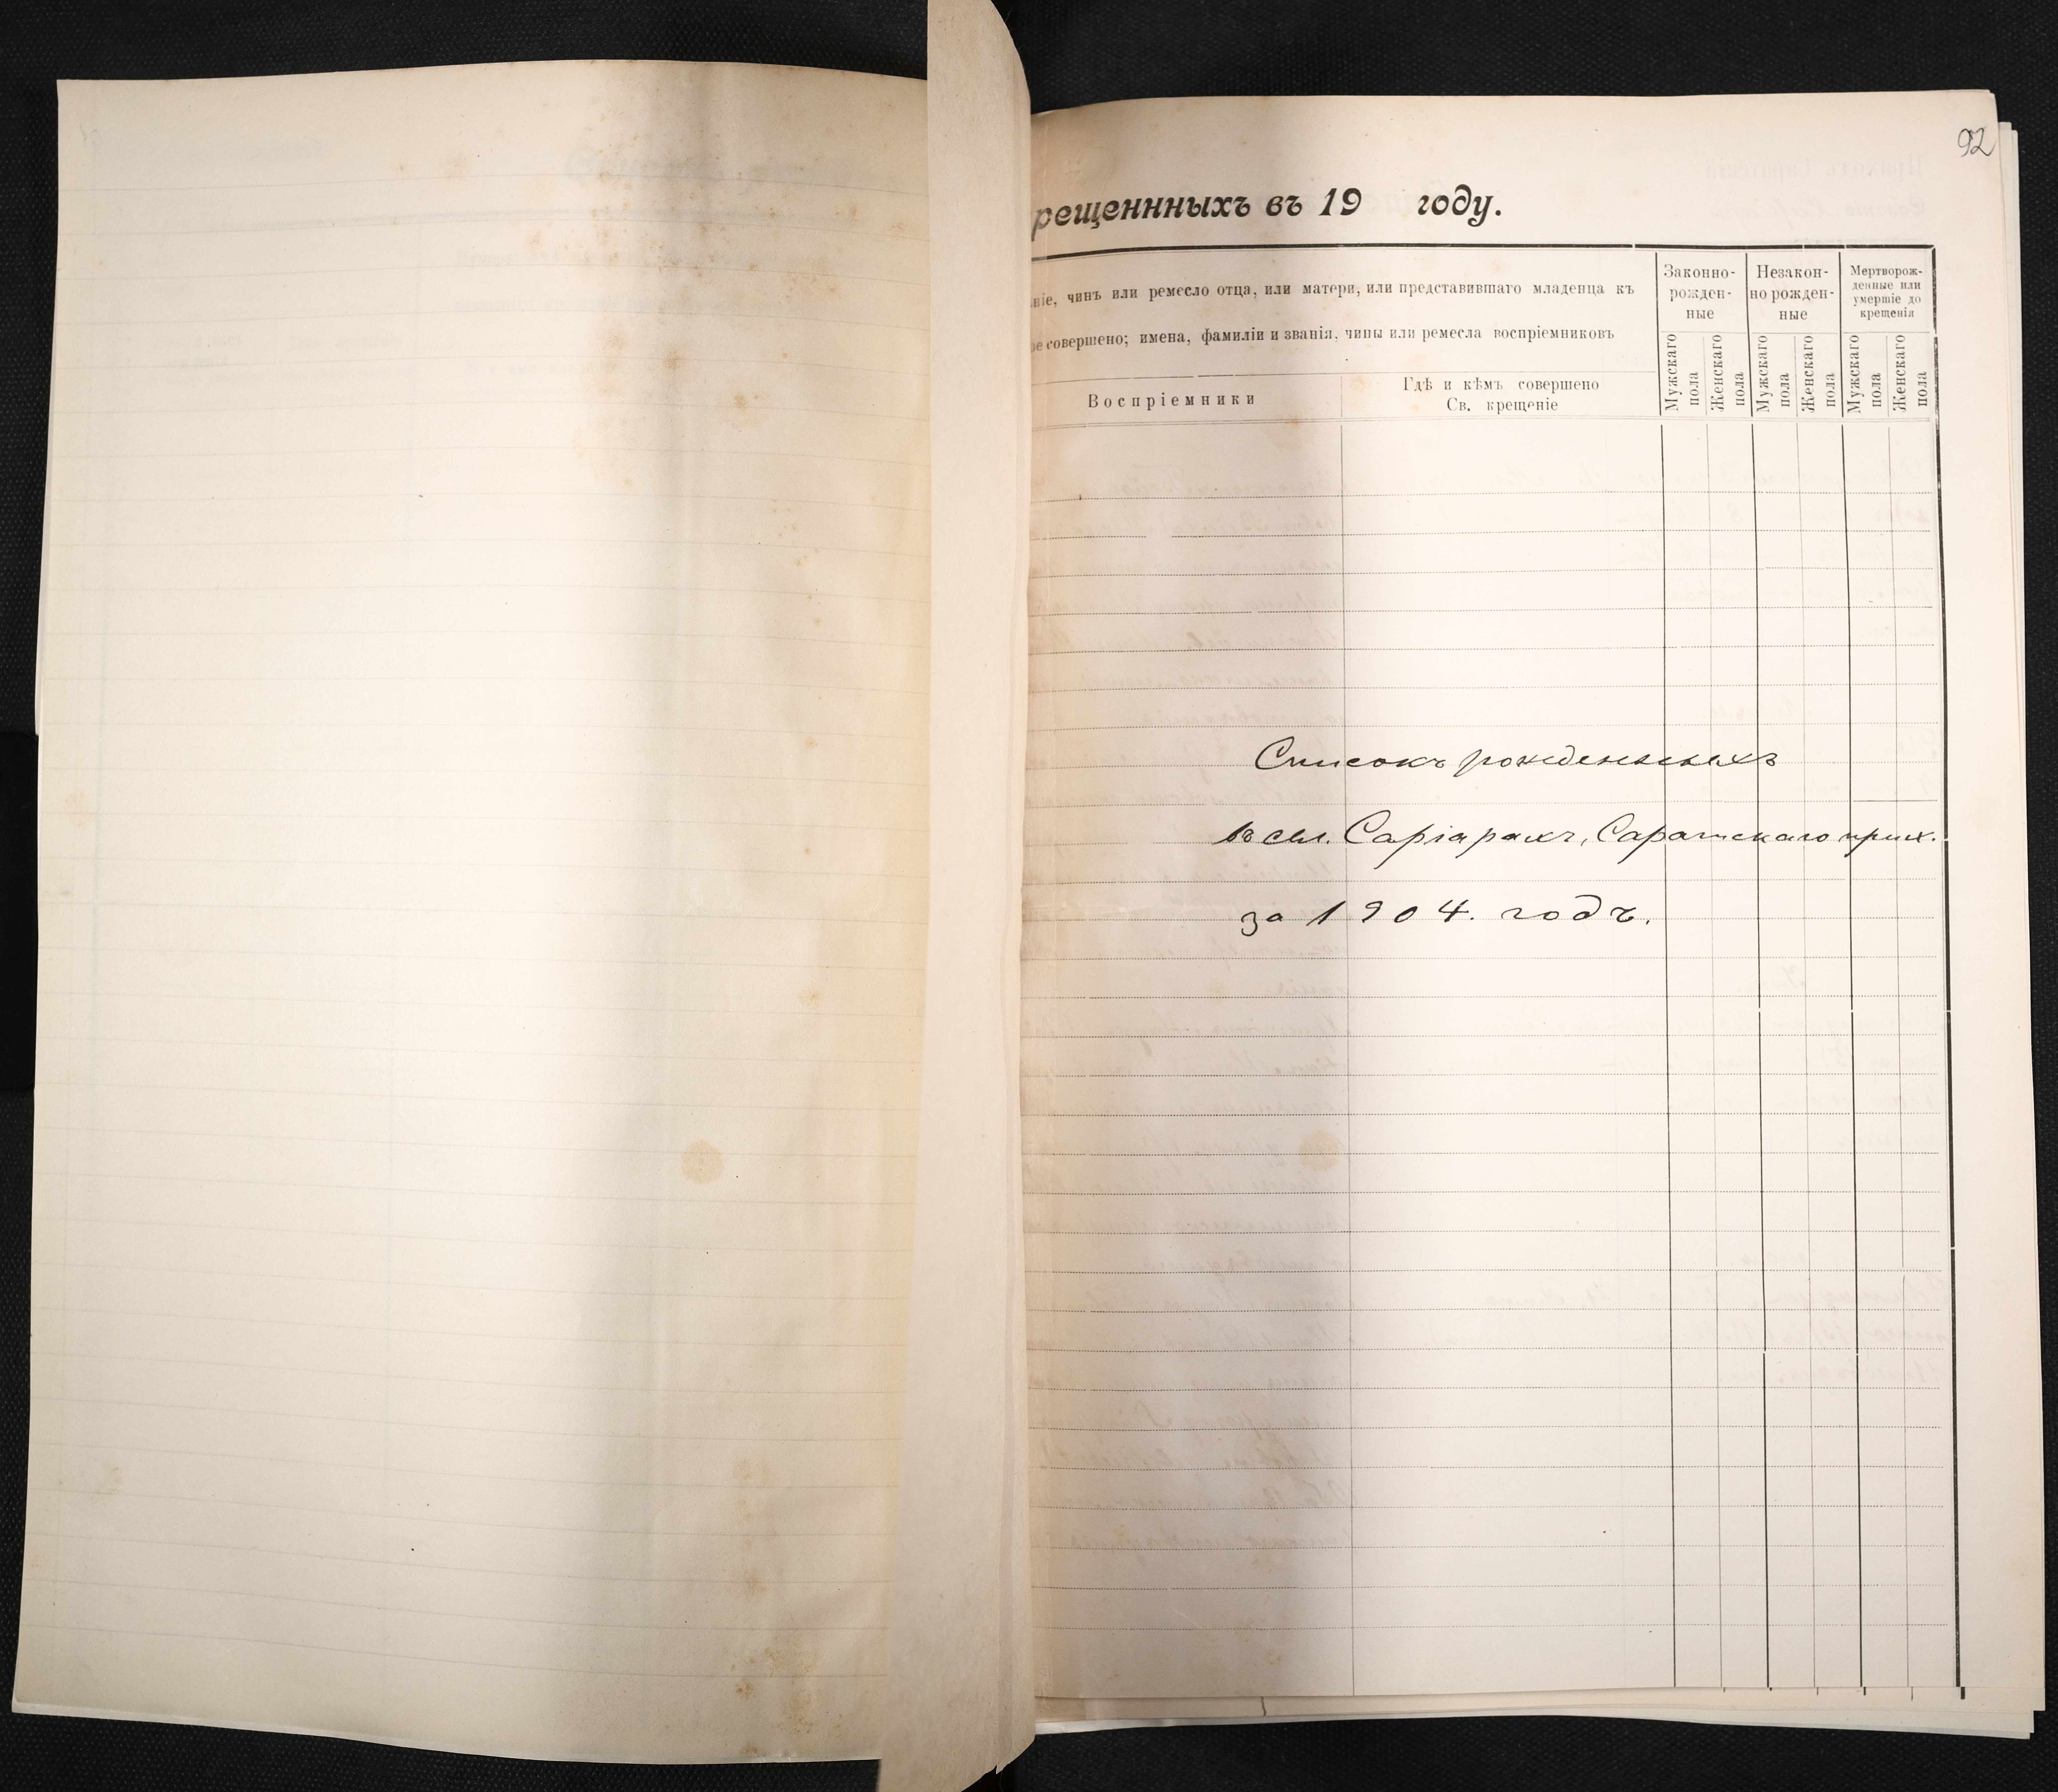 92
рещеннныхъ въ 19 году.
ніе, чинъ или ремесло отца, или матери, или представившаго младенца къ
ое совершено; имена, фамиліи и званія, чины или ремесла воспріемниковъ
Воспріемники
Гдѣ и кѣмъ совершено
Св. крещеніе
Законно-
рожден-
ные
Незакон-
но рожден-
ные
Мертворож-
денные или
умершіе до
крещенія
Мужскаго
пола
Женскаго
пола
Мужскаго
пола
Женскаго
пола
Мужскаго
пола
Женскаго
пола
Списокъ рожденныхъ
въ сел. Саріарахъ, Саратскаго прих.
за 1904. годъ.